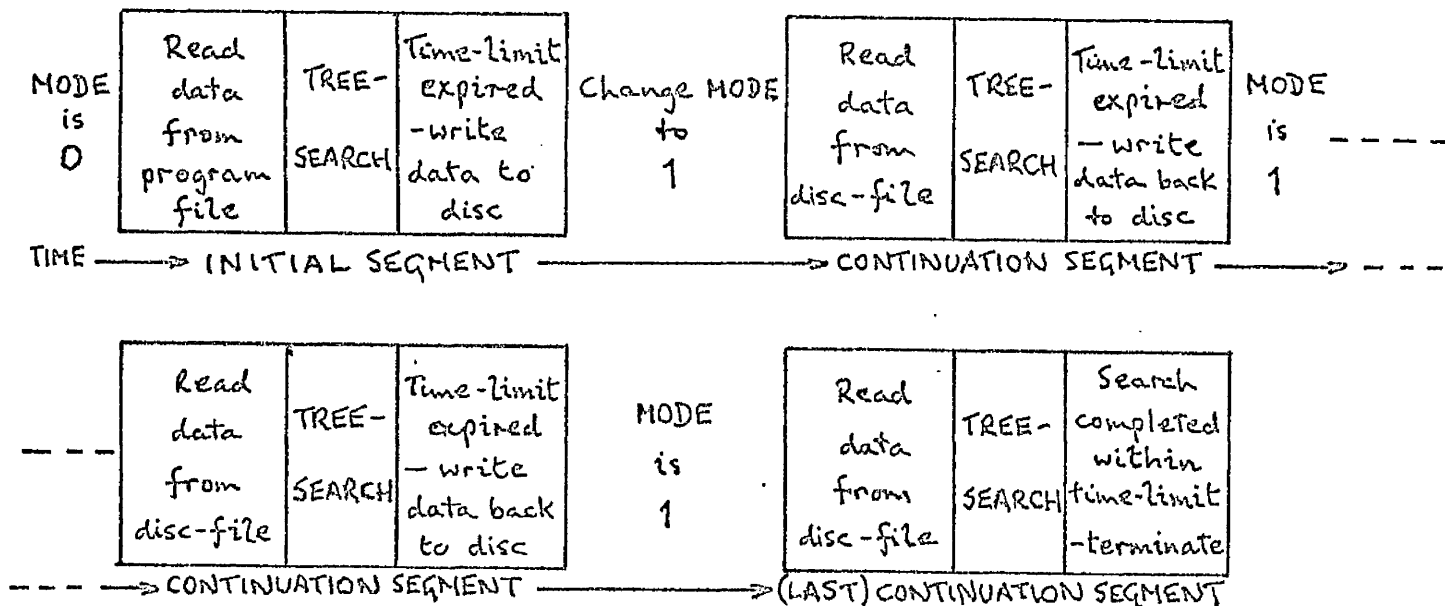 MODE
is
0
Read
data
from
program
file
TREE-
SEARCH
Time-limit
expired
-write
data to
disc
Change MODE
to
1
Read
data
from
disc-file
TREE-
SEARCH
Time-limit
expired
- write
data back
to disc
MODE
is
1
TIME INITIAL SEGMENT CONTINUATION SEGMENT
Read
data
from
disc-file
TREE-
SEARCH
Time-limit
expired
- write
data back
to disc
MODE
is
1
Read
data
from
disc-file
TREE-
SEARCH
Search
completed
within
time-limit
-terminate
CONTINUATION SEGMENT (LAST) CONTINUATION SEGMENT